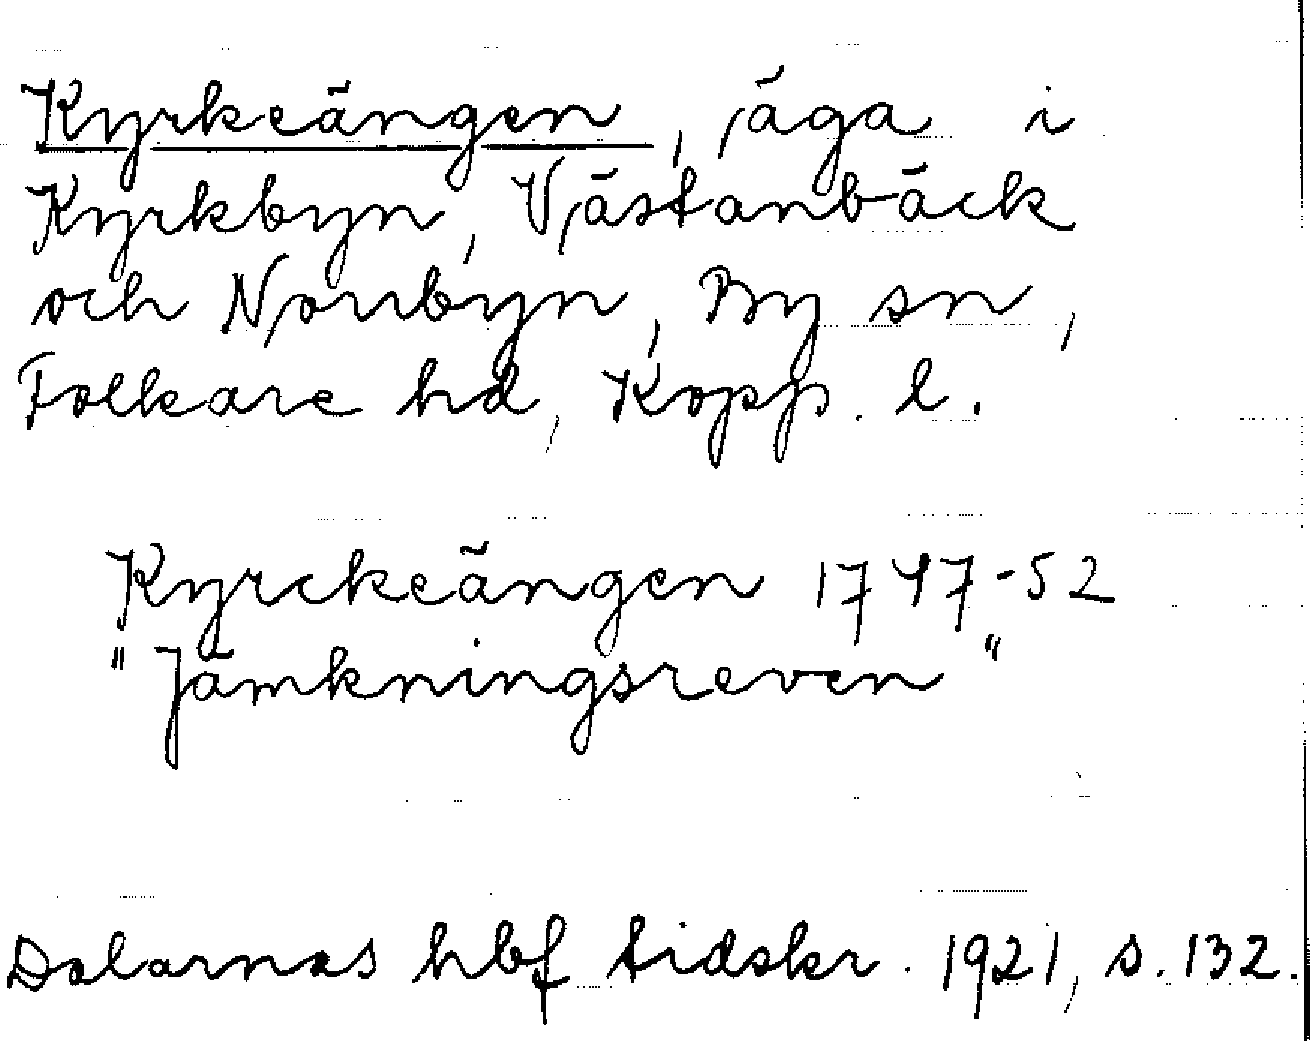 Kyrkeängen, äga i
Kyrkbyn, Västanbäck
och Norrbyn, By sn,
Folkare hd, Kopp. l.
Kyrckeängen 1747-52
"Jämkningsreven"
Dalarnas hbf tidskr. 1921, s. 132.